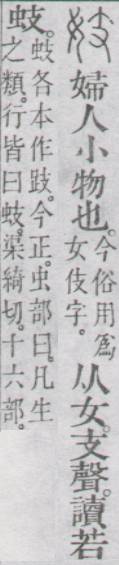 妓婦人小物也。今俗用爲女伎字。从女。支聲。讀若
蚑。蚑各本作跂。今正。虫部曰。凡生之類。行皆曰蚑。渠綺切。十六部。